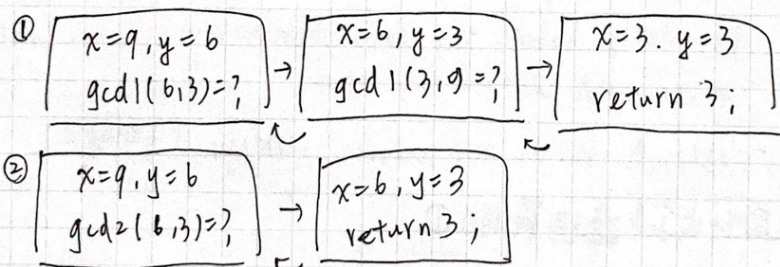 ① x=9, y=6
gcd1(6,3)=?
x=6, y=3
gcd1(3,9=?
x=3. y=3
return 3;
② x=9, y=6
gcd2(6,3)=?
x=6, y=3
return 3;